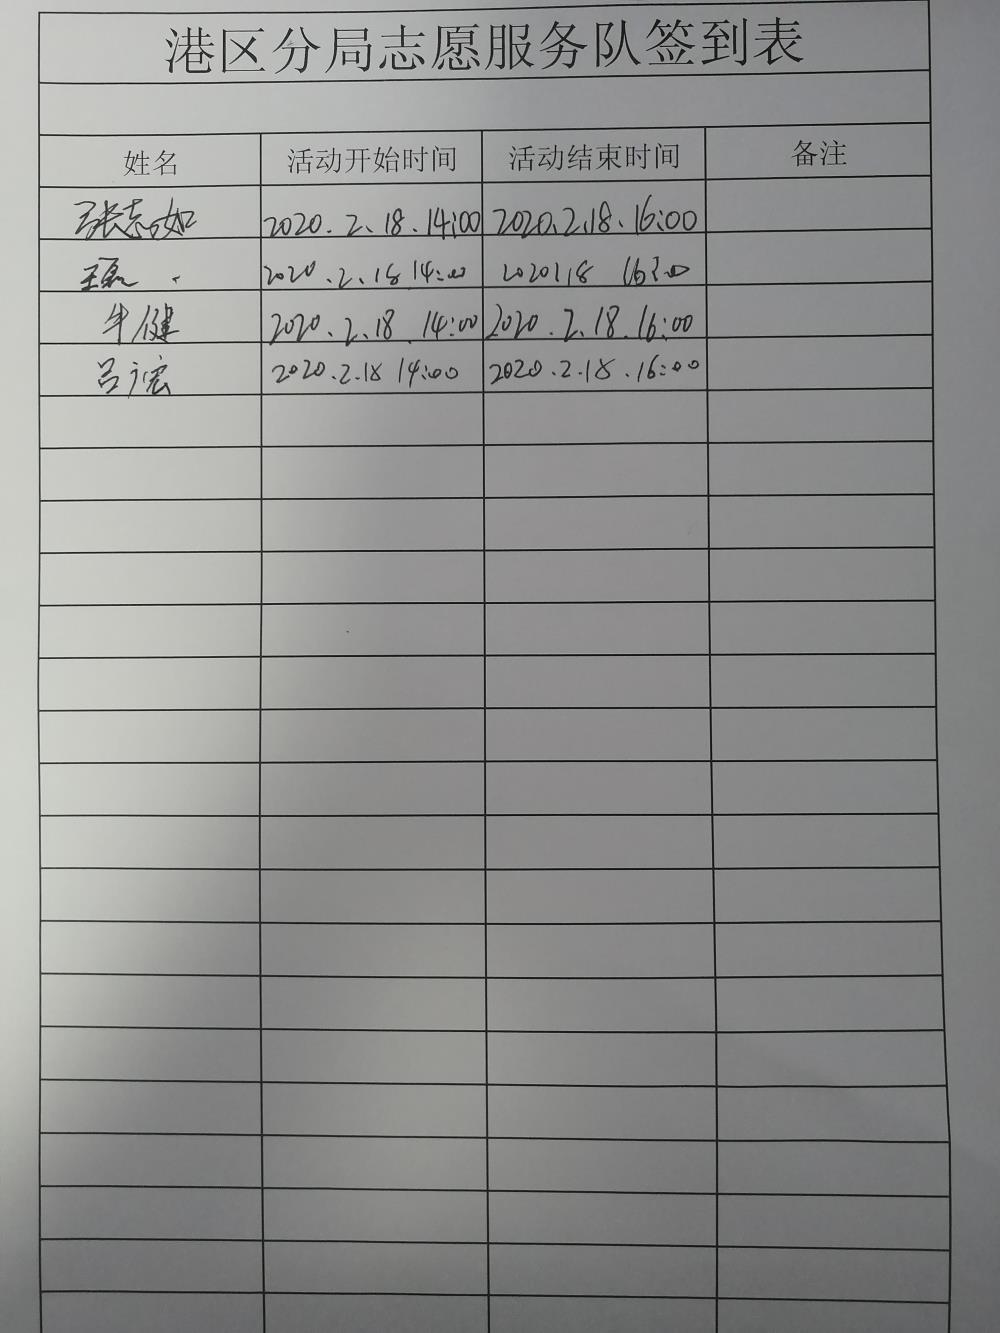 港区分局志愿服务队签到表
姓名 活动开始时间 活动结束时间 备注
张志如 2020.2.18.14:00 2020.2.18.16:00
王磊 2020.2.18 14:00 2020 2.18 16:00
牛健 2020.2.18.14:00 2020.2.18.16:00
吕广宏 2020.2.18 14:00 2020.2.18.16:00